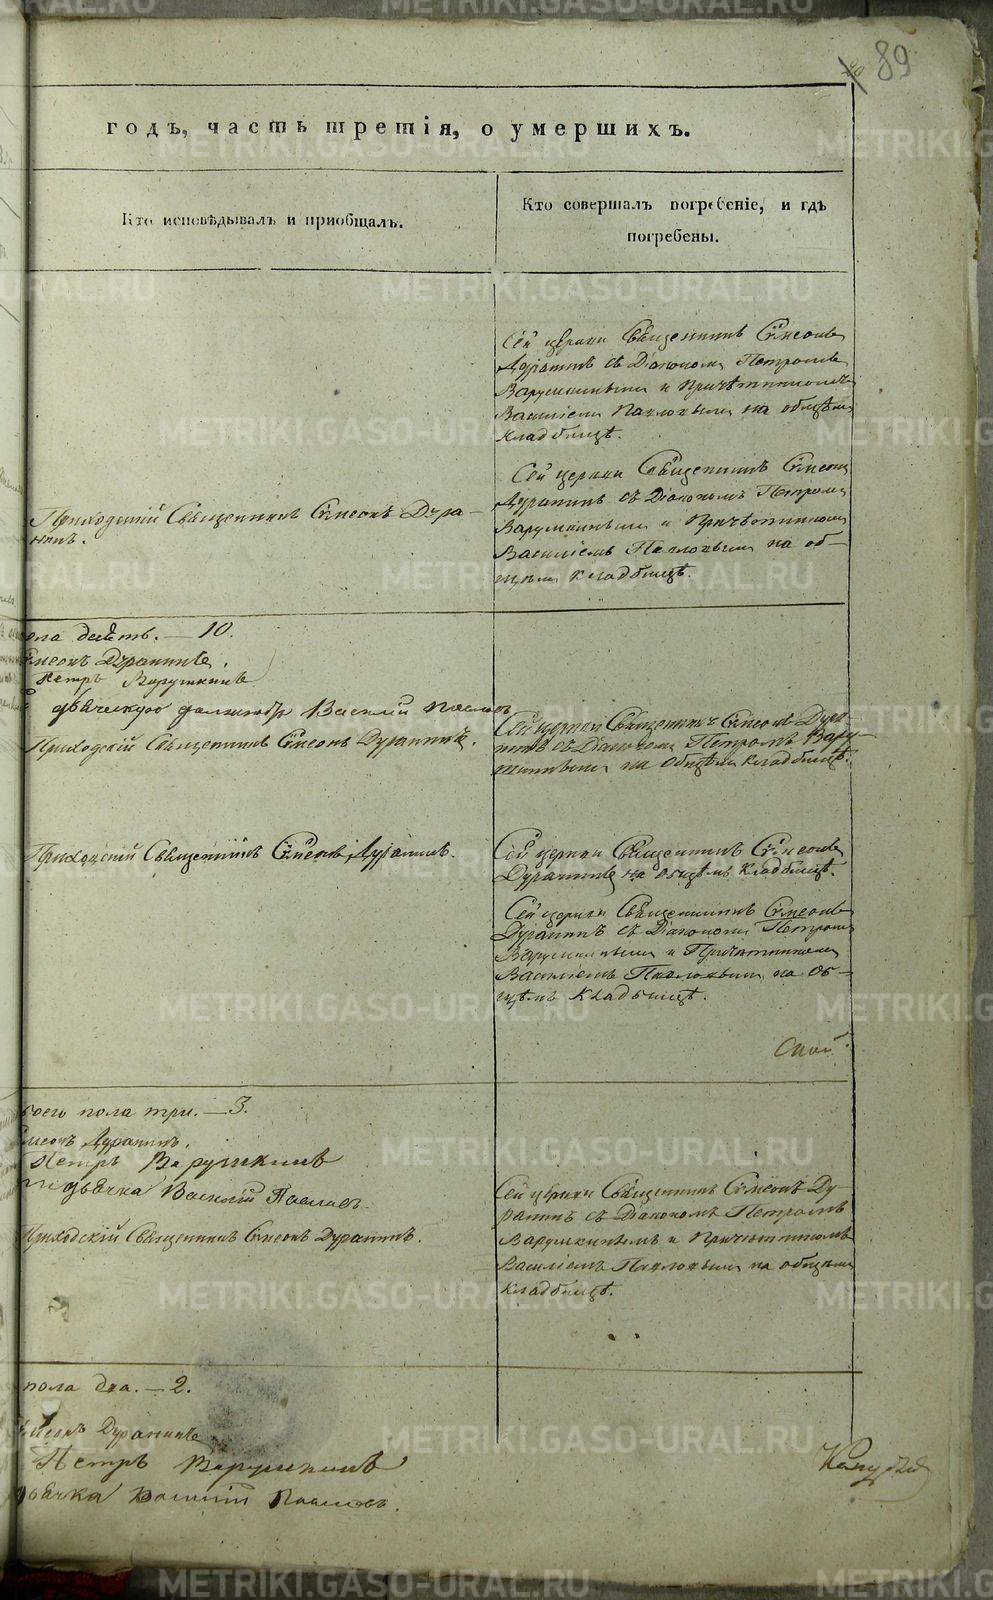 89
годъ, часть третія, о умершихъ.
Кто исповѣдывалъ и приобщалъ.
Кто совершалъ погребеніе, и гдѣ
погребены.
Сей церкви Священникъ Сѵмеонъ
Дурагинъ съ Діакономъ Петромъ
Варушкинымъ и Причѣтникомъ
Василіемъ Павловымъ на общемъ
кладбищѣ.
Приходскій Священникъ Сѵмеонъ Дура-
гинъ.
Сей церкви Священникъ Сѵмеонъ
Дурагинъ съ Діакономъ Петромъ
Варушкинымъ и Причѣтникомъ
Василіемъ Павловымъ на об-
щемъ кладбищѣ.
пола десять. — 10.
Сѵмеонъ Дурагинъ.
Петръ Варушкинъ
дьяческую должность Василій Павловъ
Приходскій Священникъ Сѵмеонъ Дурагинъ.
Сей церкви Священникъ Сѵмеонъ Дура-
гинъ съ Діакономъ Петромъ Вару-
шкинымъ на общемъ кладбищѣ.
Приходскій Священникъ Сѵмеонъ Дурагинъ.
Сей церкви Священникъ Сѵмеонъ
Дурагинъ на общемъ кладбищѣ.
Сей церкви Священникъ Сѵмеонъ
Дурагинъ съ Діакономъ Петромъ
Варушкинымъ и Причетникомъ
Василіемъ Павловымъ на об-
щемъ кладбищѣ.
обоего пола три. — 3.
Сѵмеонъ Дурагинъ.
Петръ Варушкинъ
дьячка Василій Павловъ.
Приходскій Священникъ Сѵмеонъ Дурагинъ.
Сей церкви Священникъ Сѵмеонъ Ду-
рагинъ съ Діакономъ Петромъ
Варушкинымъ и Причетникомъ
Василіемъ Павловымъ на общемъ
кладбищѣ.
пола два. — 2.
Сѵмеонъ Дурагинъ
Петръ Варушкинъ
дьячка Василій Павловъ.
METRIKI.GASO-URAL.RU